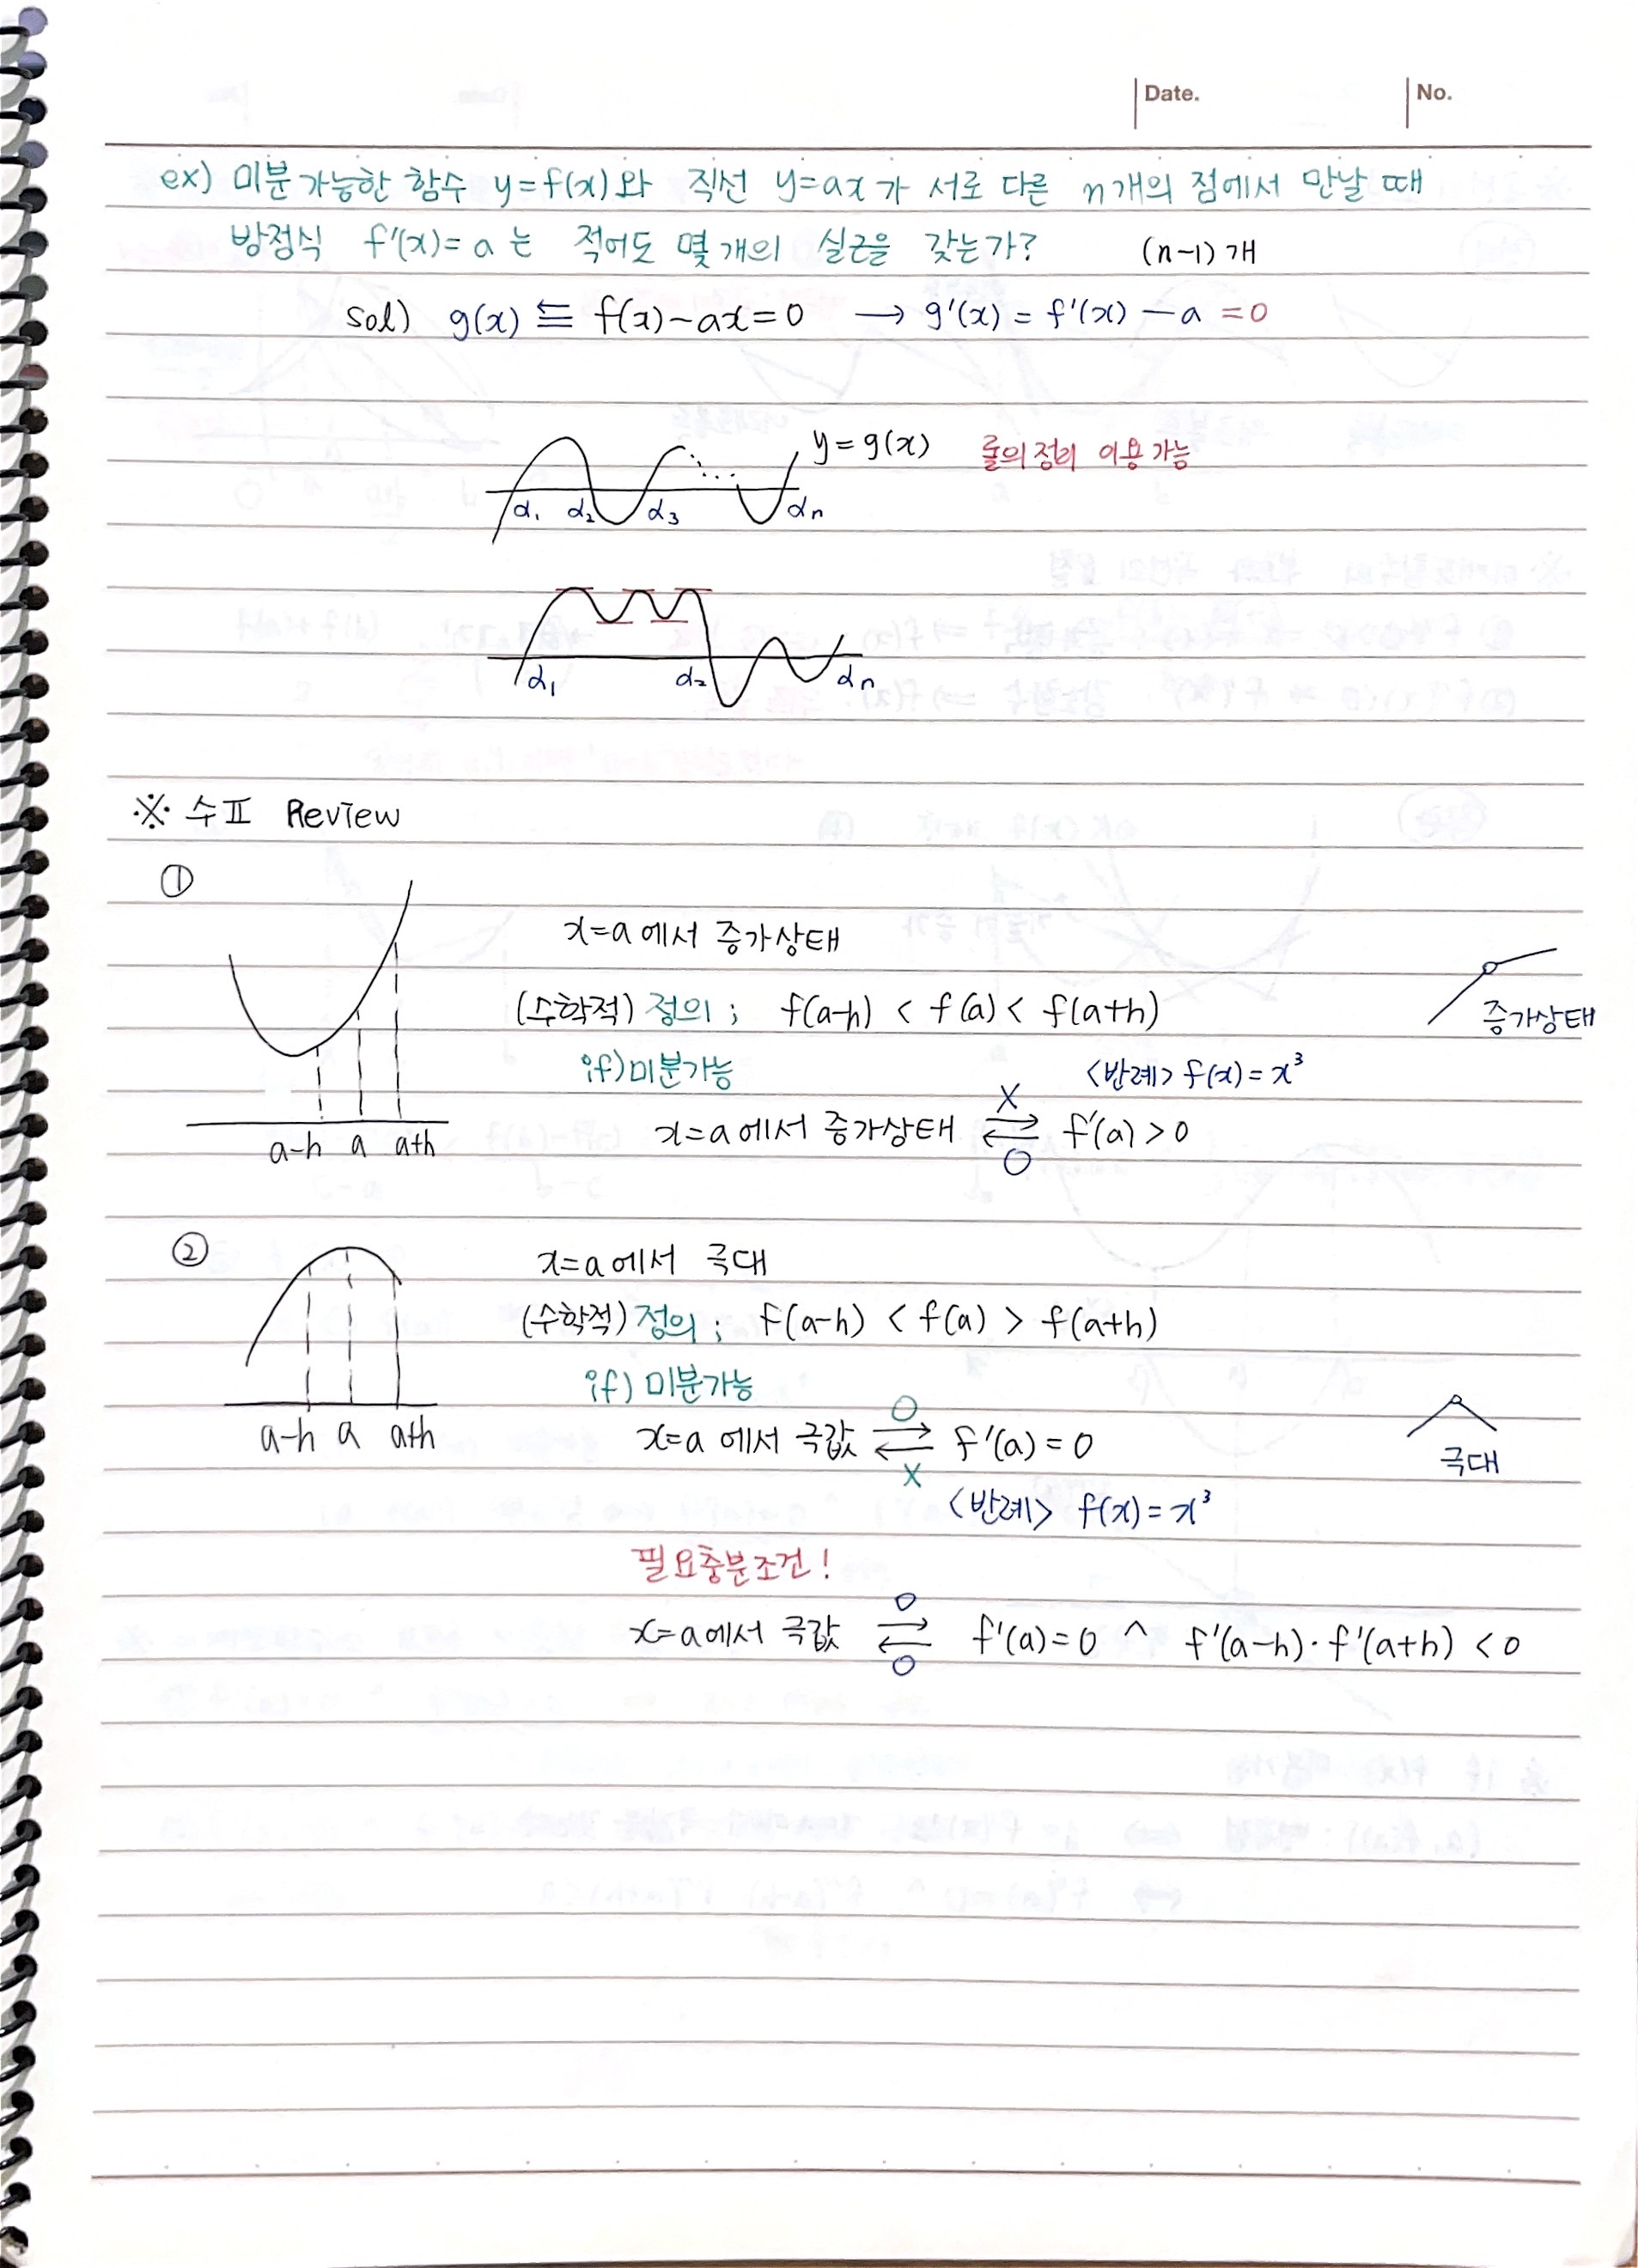 Date.
No.
ex) 미분가능한 함수 y=f(x)와 직선 y=ax가 서로 다른 n개의 점에서 만날 때
방정식 f'(x)=a 는 적어도 몇 개의 실근을 갖는가? (n-1)개
sol) g(x) ≦ f(x)-ax=0 → g'(x) = f'(x) - a = 0
y=g(x) 롤의정리 이용가능
α₁ α₂ α₃ αₙ
α₁ α₂ αₙ
※ 수Ⅱ Review
①
x=a에서 증가상태
(수학적) 정의; f(a-h) < f(a) < f(a+h)
증가상태
if) 미분가능 <반례> f(x)=x³
x=a에서 증가상태 X ⇄ O f'(a) > 0
a-h a a+h
②
x=a에서 극대
(수학적) 정의; f(a-h) < f(a) > f(a+h)
if) 미분가능
x=a에서 극값 O ⇄ X f'(a) = 0
a-h a a+h
극대
<반례> f(x)=x³
필요충분조건!
x=a에서 극값 O ⇄ O f'(a)=0 ^ f'(a-h)·f'(a+h) < 0